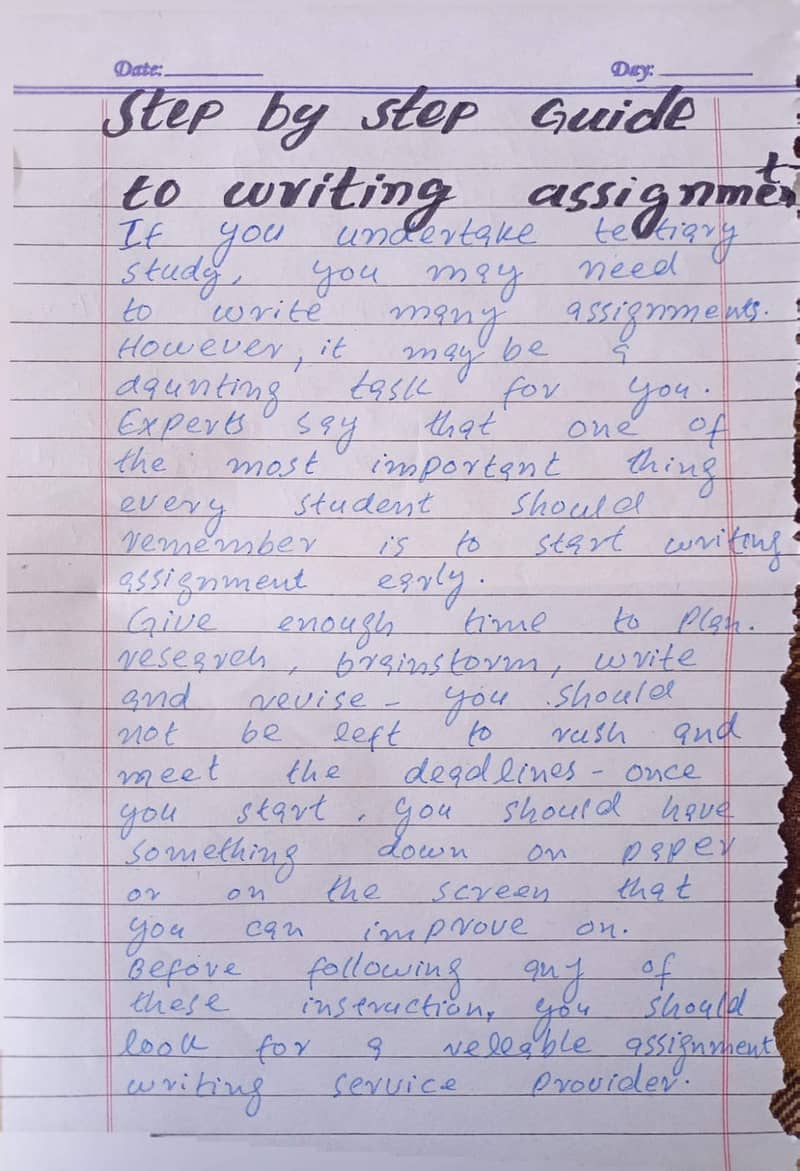 Date: Day:
Step by step Guide
to writing assignment
If you undertake tertiary
study, you may need
to write many assignments.
However, it may be a
daunting task for you.
Experts say that one of
the most important thing
every student should
remember is to start writing
assignment early.
Give enough time to plan.
research, brainstorm, write
and revise - you should
not be left to rush and
meet the deadlines - once
you start, you should have
something down on paper
or on the screen that
you can improve on.
Before following any of
these instruction, you should
look for a releable assignment
writing service provider.